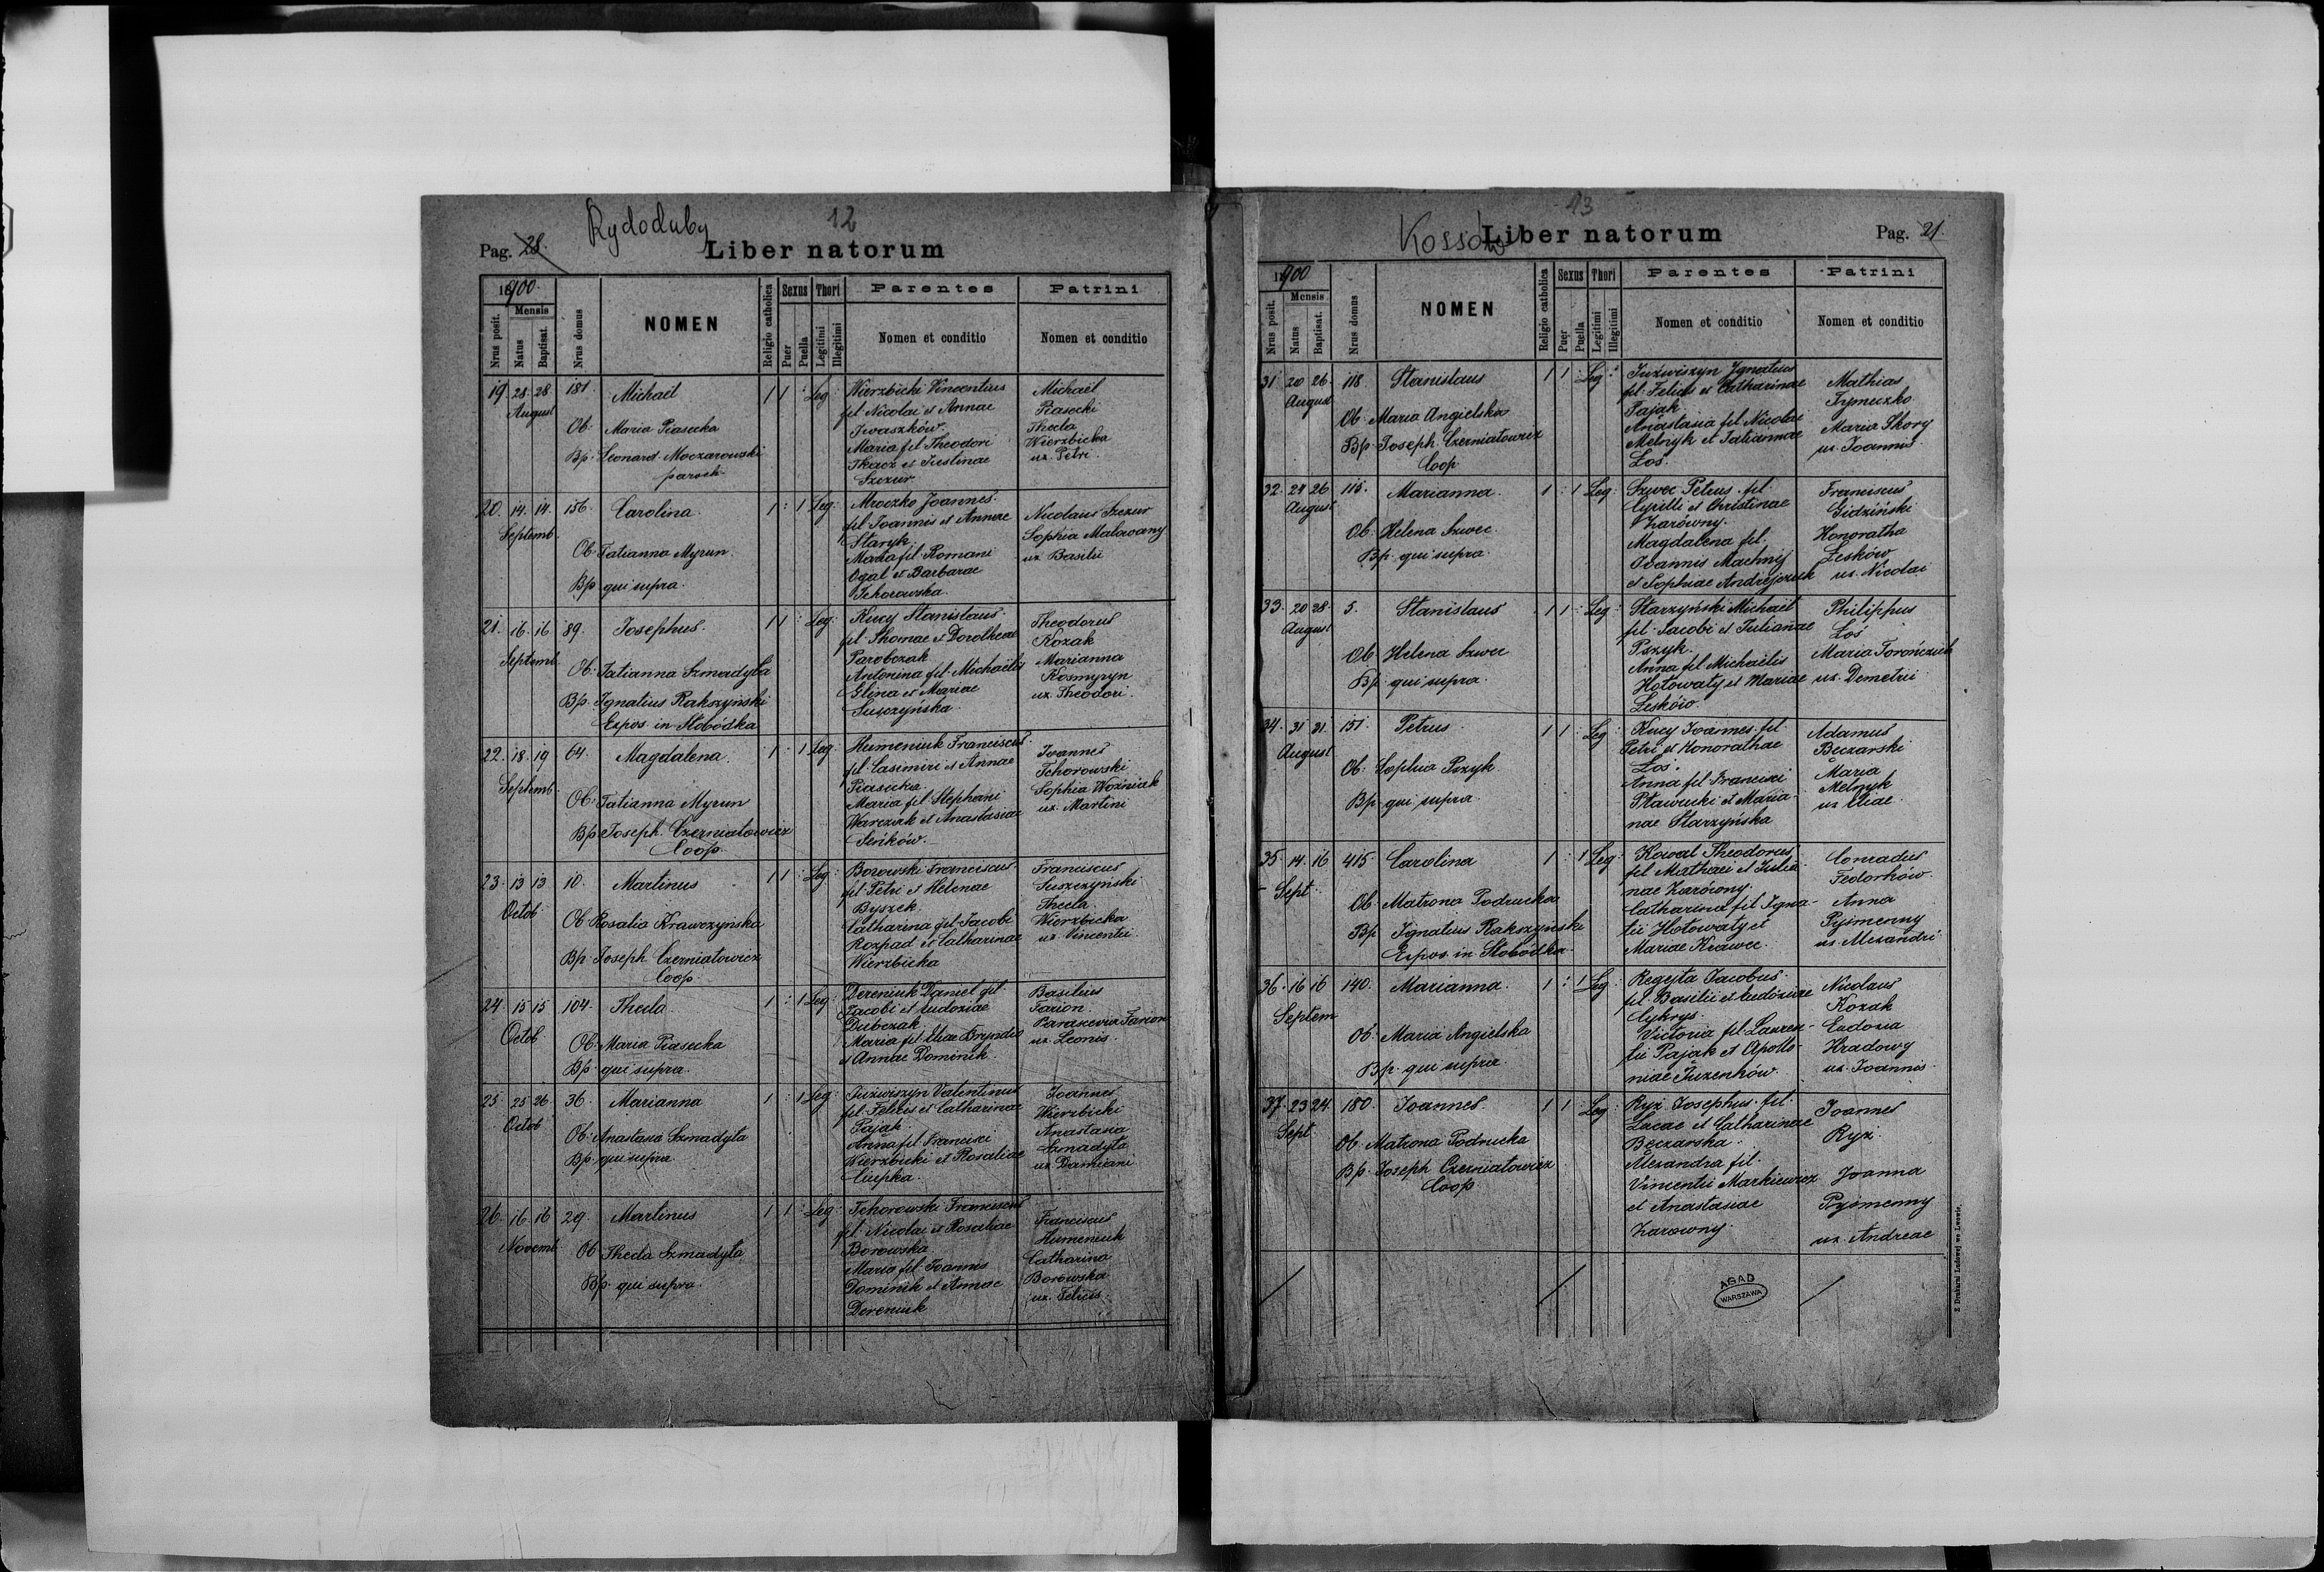 Rydoduby
12
Pag. 28.
Liber natorum
1900.
Nrus posit.
Mensis
Natus
Baptisat.
Nrus domus
NOMEN
Religio catholica
Sexus
Puer
Puella
Thori
Legitimi
Illegitimi
Parentes
Nomen et conditio
Patrini
Nomen et conditio
19. 28. 28. 181. Michaël 1 1 : Leg:
August
Ob. Maria Piasecka
Bp. Leonard Moczarowski
paroch
Wierzbicki Vincentius
fil Nicolai et Annae
Iwaszków.
Maria fil Theodori
Tkacz et Justinae
Szczur
Michaël
Piasecki
Thecla
Wierzbicka
ux. Petri
20. 14. 14. 156. Carolina. 1 : 1 Leg:
Septemb.
Ob. Tatianna Myrun.
Bp qui supra.
Mroczko Joannes.
fil. Joannis et Annae
Staryk.
Maria fil. Romani
Ogal et Barbarae
Tchorowska.
Nicolaus Szczur
Sophia Malowany
ux Basilii
21. 16. 16 89. Josephus. 1 1 : Leg:
Septemb
Ob. Tatianna Szmadyła
Bp. Ignatius Rakszyński
Expos. in Słobódka
Kucy Stanislaus.
fil Thomae et Dorotheae
Parobczak
Antonina fil. Michaëlis
Glina et Mariae
Suszczyńska.
Theodorus
Kozak
Marianna
Kosmyryn
ux. Theodori.
22. 18. 19 64. Magdalena. 1 : 1 Leg:
Septemb.
Ob. Tatianna Myrun
Bp Joseph. Czerniatowicz
Coop.
Humeniuk Franciscus.
fil. Casimiri et Annae
Piasecka.
Maria fil. Stephani
Warczuk et Anastasiae
Seńków.
Joannes
Tchorowski
Sophia Woźniak
ux. Martini
23. 13 13 10. Martinus 1 1 : Leg:
Octob
Ob Rosalia Krawczyńska
Bp. Joseph. Czerniatowicz
Coop.
Borowski Franciscus.
fil. Petri et Helenae
Byszek.
Catharina fil. Jacobi
Rozpad et Catharinae
Wierzbicka
Franciscus
Suszczyński
Thecla
Wierzbicka
ux. Vincentii
24. 15 15 104. Thecla. 1 : 1 Leg:
Octob
Ob. Maria Piasecka
Bp. qui supra.
Dereniuk Daniel fil
Jacobi et Eudoxiae
Dubczak.
Maria fil Eliae Bryndio
et Annae Dominik.
Basilius
Farion
Parascevia Farion
ux. Leonis.
25. 25 26. 36. Marianna 1 : 1 Leg:
Octob
Ob. Anastasia Szmadyła
Bp. qui supra
Juźwiszyn Valentinus
fil. Felicis et Catharinae
Pająk.
Anna fil. Francisci
Wierzbicki et Rosaliae
Ciupka.
Joannes
Wierzbicki
Anastasia
Szmadyła
ux. Damiani
26. 16 16 29. Martinus 1 1 : Leg:
Novemb
Ob Thecla Szmadyła
Bp. qui supra.
Tchorowski Franciscus
fil. Nicolai et Rosaliae
Borowska
Maria fil. Joannis
Dominik et Annae
Dereniuk
Franciscus
Humeniuk
Catharina
Borowska
ux. Felicis.
13
Kossów
Liber natorum
Pag. 21.
1900
Nrus posit.
Mensis
Natus
Baptisat.
Nrus domus
NOMEN
Religio catholica
Sexus
Puer
Puella
Thori
Legitimi
Illegitimi
Parentes
Nomen et conditio
Patrini
Nomen et conditio
31. 20 26. 118 Stanislaus 1 1 : Leg:
August
Ob. Maria Angielska
Bp. Joseph. Czerniatowicz
Coop
Juźwiszyn Ignatius
fil. Felicis et Catharinae
Pająk
Anastasia fil Nicolai
Melnyk et Tatiannae
Łoś.
Mathias
Tymeczko
Maria Skory
ux. Joannis
32. 24 26 115. Marianna. 1 : 1 Leg:
August
Ob. Helena Szwec.
Bp. qui supra.
Szwec Petrus. fil.
Cyrilli et Christinae
Zarówny.
Magdalena fil.
Joannis Machnij
et Sophiae Andrejczuk
Franciscus
Gidziński
Honoratha
Leśków
ux. Nicolai
33. 20 28. 5. Stanislaus 1 1 : Leg:
August
Ob Helena Szwec
Bp. qui supra.
Starzyński Michaël
fil. Jacobi et Julianae
Pszyk.
Anna fil Michaëlis
Hołowaty et Mariae
Leśków.
Philippus
Łoś
Maria Torończuk
ux. Demetrii
34. 31 31. 151. Petrus 1 1 : Leg:
August
Ob. Sophia Pszyk
Bp qui supra.
Kucy Joannes. fil.
Petri et Honorathae
Łoś.
Anna fil Francisci
Sławucki et Maria-
nae Starzyńska
Adamus
Bęczarski
Maria
Melnyk
ux Eliae.
35. 14. 16 415. Carolina 1 : 1 Leg:
Sept.
Ob. Matrona Podrucka
Bp Ignatius Rakszyński
Expos. in Słobódka.
Kowal Theodorus
fil Mathaei et Julia-
nae Zarówny.
Catharina fil Igna-
tii Hołowaty et
Mariae Krawec.
Conradus
Fedorków.
Anna
Pyśmenny
ux. Alexandri
36. 16 16 140. Marianna. 1 : 1 Leg:
Septem
Ob. Maria Angielska
Bp. qui supra.
Regeyta Jacobus.
fil. Basilii et Eudoxiae
Cykrys.
Victoria fil. Lauren-
tii Pająk et Apollo-
niae Juzenków.
Nicolaus
Kozak
Eudoxia
Hradowy
ux. Joannis.
37. 23 24. 180. Joannes. 1 1 : Leg:
Sept.
Ob. Matrona Podrucka
Bp. Joseph Czerniatowicz
Coop.
Ryż Josephus. fil.
Lucae et Catharinae
Bęczarska.
Alexandra fil.
Vincentii Markiewicz
et Anastasiae
Zarowny.
Joannes
Ryż.
Joanna
Pyśmenny
ux. Andreae
AGAD
WARSZAWA
Z Drukarni Ludowej we Lwowie.